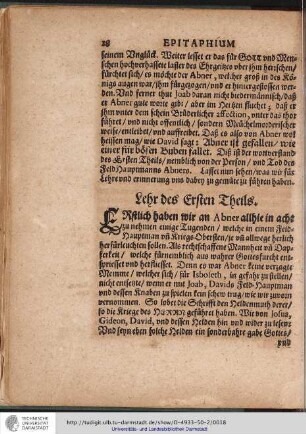 28 EPITAPHIUM
seinem Unglück. Weiter lesset er das für GOTT und Men-
schen hochverhassete laster des Ehrgeitzes uber ihm herrschen/
fürchtet sich/ es möchte der Abner, welcher groß in des Kö-
nigs augen war/ ihm fürgezogen/ und er hindangesetzet wer-
den. Und ferner thut Joab daran nicht biedermännisch/ daß
er Abner gute worte gibt/ aber im Hertzen fluchet; daß er
ihm unter dem schein Brüderlicher affection, unter das thor
führet/ und nicht offentlich/ sondern Mäuchelmörderischer
weise/entleibet/ und auffreibet. Daß es also von Abner wol
heissen mag/ wie David sagt: Abner ist gefallen/ wie
einer für bösen Buben fället. Diß ist der wortverstand
des Ersten Theils/ nemblich von der Person/ und Tod des
Feld-Hauptmanns Abners. Lasset nun sehen/ was wir für
Lehre und erinnerung uns dabey zu gemüte zu führen haben.
Lehr des Ersten Theils.
ERstlich haben wir an Abner allhie in acht
zu nehmen einige Tugenden/ welche in einem Feld-
Hauptman vñ Kriegs-Obersten/ je vñ allwege herlich
herfürleuchten sollen. Als rechtschaffene Mannheit vñ Dap-
ferkeit/ welche fürnemblich aus wahrer Gottesfurcht ent-
spriesset und herfliesset. Denn es war Abner keine verzagte
Memme/ welcher sich/ für Isboseth, in gefahr zustellen/
nicht entsetzte/ wenn er mit Joab, Davids Feld-Hauptman
und dessen Knaben zu spielen kein schew trug/ wie wir zuvorn
vernommen. So lobet die Schrifft den Heldenmuth derer/
so die Kriege des HERRN geführet haben. Wie von Josua,
Gideon, David, und dessen Helden hin und wider zu lesen.
Und seyn eben solche Helden ein sonderbahre gabe Gottes/
und
http://tudigit.ulb.tu-darmstadt.de/show/0-4933-50-2/0018
Universitäts- und Landesbibliothek Darmstadt
TECHNISCHE
UNIVERSITÄT
DARMSTADT